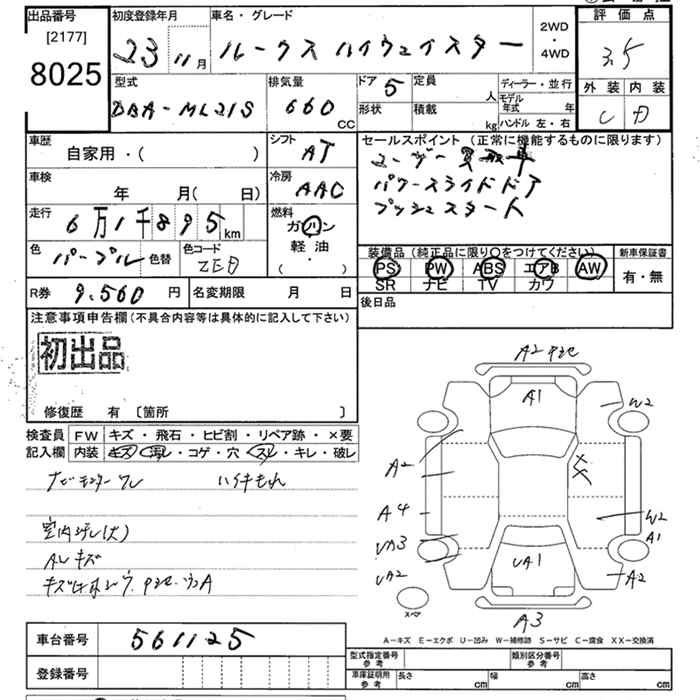 出品番号
[2177]
8025
初度登録年月
23 11月
車名・グレード
ルークス ハイウェイスター
2WD
・
4WD
評価点
3.5
外装 内装
C D
型式
DBA-ML21S
排気量
660 CC
ドア 5
定員 人
形状
積載 kg
ディーラー・並行
モデル年式 年
ハンドル 左・右
車歴
自家用・( )
シフト
AT
セールスポイント(正常に機能するものに限ります)
ユーザー買取車
パワースライドドア
プッシュスタート
車検
年 月( 日)
冷房
AAC
走行
6万1千895 km
燃料
ガソリン
軽油・
( )
色
パープル 色替
色コード
装備品(純正品に限り○をつけてください)
PS PW ABS エアB AW
SR ナビ TV カワ
新車保証書
有・無
R券 9.560 円
名変期限 月 日
後日品
注意事項申告欄(不具合内容等は具体的に記入して下さい)
初出品
修復歴 有 〔箇所 〕
検査員
記入欄
FW キズ・飛石・ヒビ割・リペア跡・×要
内装 キズ・汚れ・コゲ・穴・スレ・キレ・破レ
室内汚レ(大)
ALキズ
A2
A1
W2
A2
A4
W2
A1
UA1
A2
A3
スペア
A-キズ E-エクボ U-凹み W-補修跡 S-サビ C-腐食 XX-交換済
車台番号 561125
登録番号
型式指定番号
参考
類別区分番号
参考
車庫証明用
参考
長さ cm 幅 cm 高さ cm